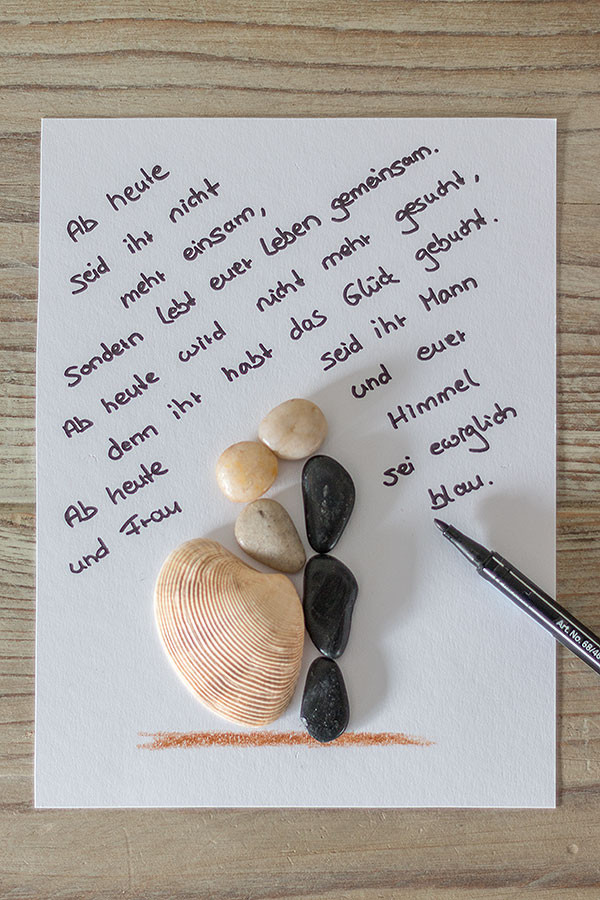 Ab heute
seid ihr nicht
mehr einsam,
Sondern lebt euer Leben gemeinsam.
Ab heute wird nicht mehr gesucht,
denn ihr habt das Glück gebucht.
Ab heute seid ihr Mann
und Frau und euer
Himmel
sei ewiglich
blau.
Art. No. 68/46